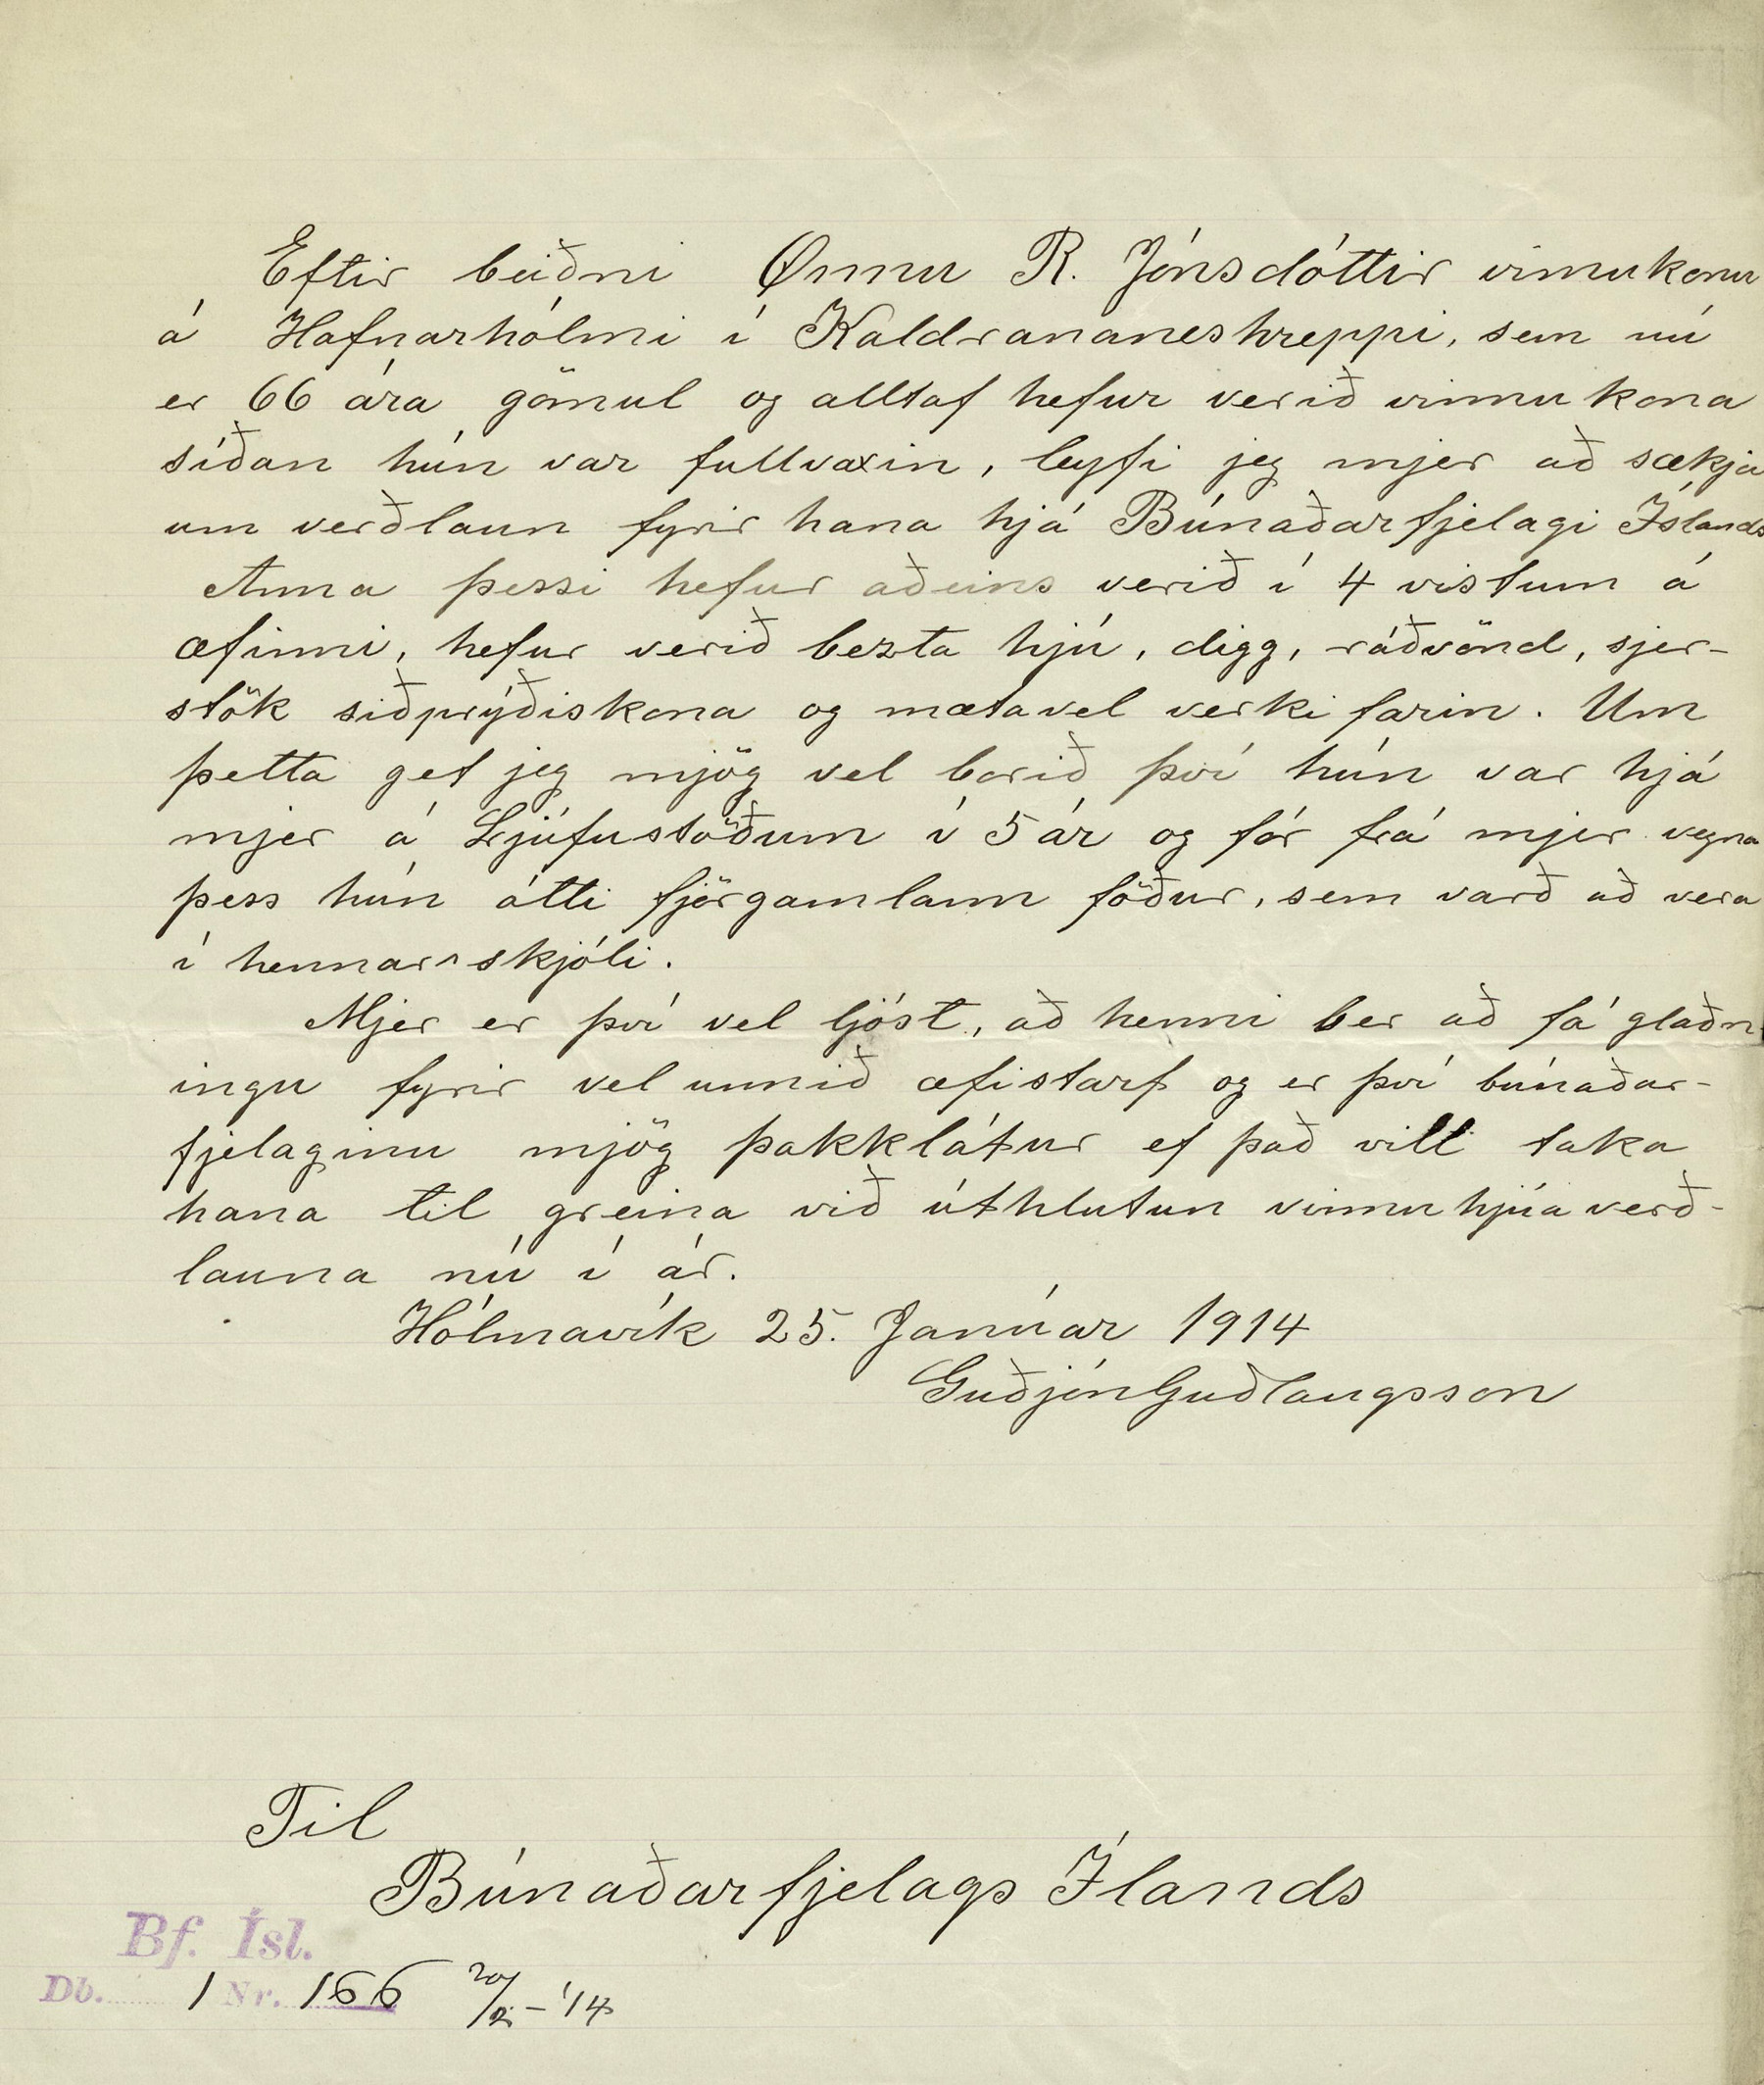 Eftir beiðni Önnu R. Jónsdóttir vinnukonu
á Hafnarhólmi í Kaldrananeshreppi, sem nú
er 66 ára gömul og alltaf hefur verið vinnukona
síðan hún var fullvaxin, leyfi jeg mjer að sækja
um verðlaun fyrir hana hjá Búnaðarfjelagi Íslands
Anna þessi hefur aðeins verið í 4 vistum á
æfinni, hefur verið bezta hjú, digg, ráðvönd, sjer-
stök siðprýðiskona og mætavel verki farin. Um
þetta get jeg mjög vel borið því hún var hjá
mjer á Ljúfustöðum í 5 ár og fór frá mjer vegna
þess hún átti fjörgamlann föður, sem varð að vera
í hennar skjóli.
Mjer er því vel ljóst, að henni ber að fá glaðn
ingu fyrir vel unnið æfistarf og er því búnaðar-
fjelaginu mjög þakklátur ef það vill taka
hana til greina við úthlutun vinnuhjúaverð-
launa nú í ár.
Hólmavík 25. Janúar 1914
Guðjón Guðlaugsson
Til
Búnaðarfjelags Ílands
Bf. Ísl.
Db. 1 Nr. 166 20/2 - '14